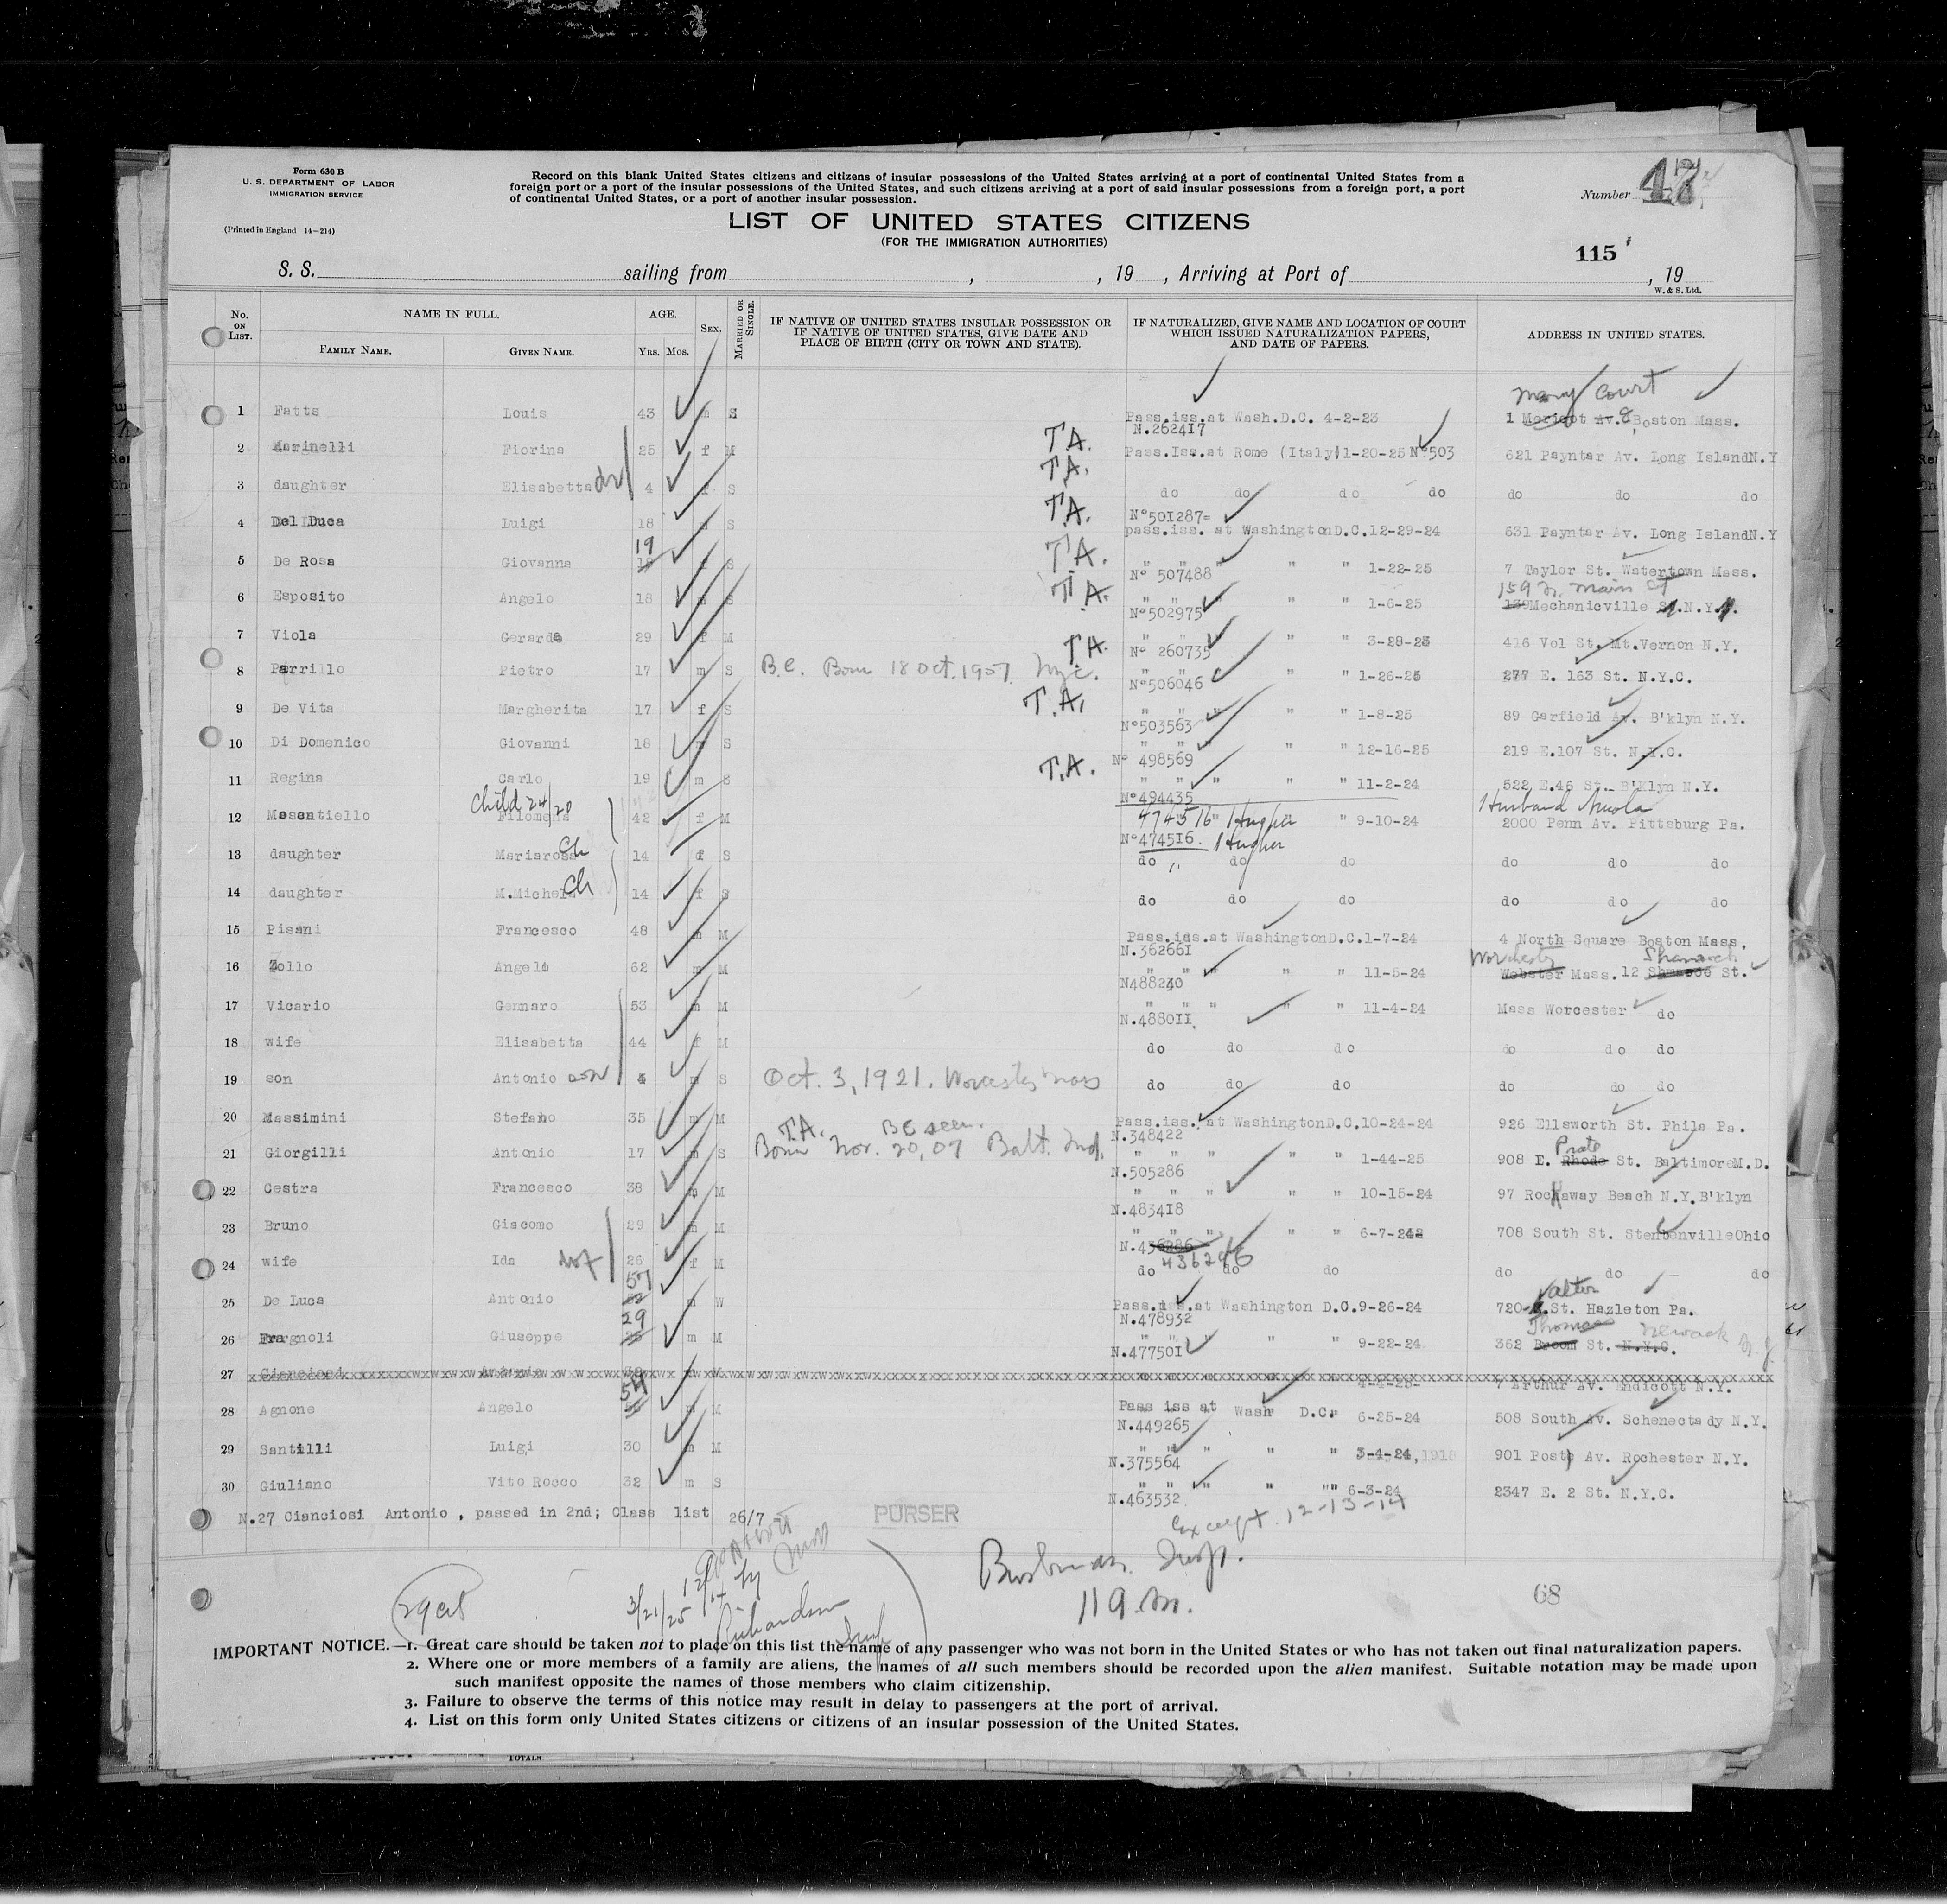 Form 630 B
U. S. DEPARTMENT OF LABOR
IMMIGRATION SERVICE
(Printed in England 14—214)
Record on this blank United States citizens and citizens of insular possessions of the United States arriving at a port of continental United States from a
foreign port or a port of the insular possessions of the United States, and such citizens arriving at a port of said insular possessions from a foreign port, a port
of continental United States, or a port of another insular possession.
Number
LIST OF UNITED STATES CITIZENS
(FOR THE IMMIGRATION AUTHORITIES)
115
S. S. sailing from , , 19 , Arriving at Port of , 19
W. & S. Ltd.
No. ON LIST. NAME IN FULL. AGE. SEX. MARRIED OR SINGLE. IF NATIVE OF UNITED STATES INSULAR POSSESSION OR IF NATIVE OF UNITED STATES, GIVE DATE AND PLACE OF BIRTH (CITY OR TOWN AND STATE). IF NATURALIZED, GIVE NAME AND LOCATION OF COURT WHICH ISSUED NATURALIZATION PAPERS, AND DATE OF PAPERS. ADDRESS IN UNITED STATES.
FAMILY NAME. GIVEN NAME. YRS. MOS.
Court
1 Fatts Louis 43 m S Pass.iss.at Wash.D.C. 4-2-23 1 Av. Boston Mass.
N.262417
2 Marinelli Fiorina 25 f M T.A. Pass.Iss.at Rome (Italy)1-20-25 N°503 621 Payntar Av. Long IslandN.Y
3 daughter Elisabetta 4 f S T.A. do do do do do do do
N°501287=
4 Del Duca Luigi 18 m S T.A. pass.iss. at WashingtonD.C.12-29-24 631 Payntar Av. Long IslandN.Y
19
5 De Rosa Giovanna f S T.A. " " " " " 1-22-25 7 Taylor St. Watertown Mass.
N° 507488
159 N. Main St
6 Esposito Angelo 18 m S T.A. " " " " 1-6-25 139Mechanicville N.Y.
N°502975
7 Viola Gerarda 29 f M T.A. " " " " " 3-28-23 416 Vol St. Mt.Vernon N.Y.
N° 260735
8 Parrillo Pietro 17 m S B.C. Born 18 Oct. 1907 NYC. " " " " 1-26-25 277 E. 163 St. N.Y.C.
N°506046
9 De Vita Margherita 17 f S T.A. " " " " " 1-8-25 89 Garfield Av. B'klyn N.Y.
N°503563
10 Di Domenico Giovanni 18 m S " " " " 12-16-25 219 E.107 St. N.Y.C.
N° 498569
11 Regina Carlo 19 m S T.A. " " " " " 11-2-24 522 E.46 St. B'Klyn N.Y.
N°494435
Child 24/20 Husband Nicola
12 Mosentiello Filomena 42 f M 474516 " " 9-10-24 2000 Penn Av. Pittsburg Pa.
N°474516
13 daughter Mariarosa Ch 14 f S do " do do do do do
14 daughter M.Michela Ch 14 f S do do do do do do
15 Pisani Francesco 48 m M Pass.iss.at WashingtonD.C.1-7-24 4 North Square Boston Mass.
N.362661
Worchester
16 Zollo Angelo 62 m M " " " " " 11-5-24 Webster Mass. 12 St.
N488240
17 Vicario Gennaro 53 m M " " " " " 11-4-24 Mass Worcester do
N.488011
18 wife Elisabetta 44 f M do do do do do do
19 son Antonio son 4 m S Oct. 3, 1921. Worcester Mass do do do do do do
20 Massimini Stefano 35 m M Pass.iss. at WashingtonD.C.10-24-24 926 Ellsworth St. Phila Pa.
N.348422
T.A. BC seen.
21 Giorgilli Antonio 17 m S Born Nov. 20, 07 Balt. Md. " " " " " 1-44-25 908 E. St. BaltimoreM.D.
N.505286
22 Cestra Francesco 38 m M " " " " " 10-15-24 97 Rockaway Beach N.Y.B'klyn
N.483418
23 Bruno Giacomo 29 m M " " " " " 6-7-24 708 South St. StenbenvilleOhio
N.436286
436296
24 wife Ida 26 f M do do do do do do
57
25 De Luca Antonio m W Pass.iss.at Washington D.C.9-26-24 720 St. Hazleton Pa.
N.478932
29 Thomas Newark N.J.
26 Fragnoli Giuseppe m M " " " " " 9-22-24 362 Broom St. N.Y.C.
N.477501
27 Cianciosi Antonio 38 m M 4-4-25- 7 Arthur Av. Endicott N.Y.
54
28 Agnone Angelo m M Pass iss at Wash D.C. 6-25-24 508 South Av. Schenectady N.Y.
N.449265
29 Santilli Luigi 30 m M " " " " " 3-4-24 901 Post Av. Rochester N.Y.
N.375564
30 Giuliano Vito Rocco 32 m S " " " " "" 6-3-24 2347 E. 2 St. N.Y.C.
N.463532
N.27 Cianciosi Antonio , passed in 2nd; Class list 26/7 PURSER
Except 12-13-14
Insp.
119 M.
3/21/25
Richardson
Insp
68
IMPORTANT NOTICE.—1. Great care should be taken not to place on this list the name of any passenger who was not born in the United States or who has not taken out final naturalization papers.
2. Where one or more members of a family are aliens, the names of all such members should be recorded upon the alien manifest. Suitable notation may be made upon
such manifest opposite the names of those members who claim citizenship.
3. Failure to observe the terms of this notice may result in delay to passengers at the port of arrival.
4. List on this form only United States citizens or citizens of an insular possession of the United States.
TOTALS